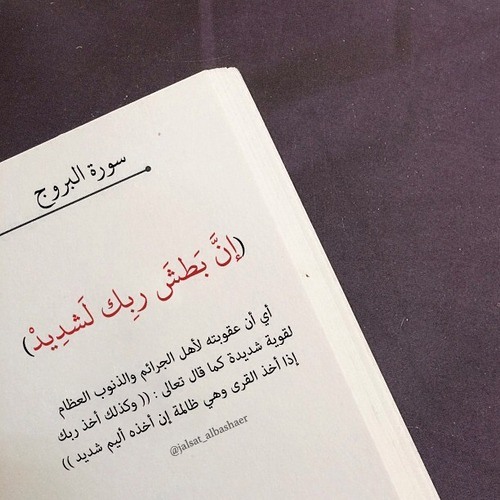 سورة البروج
(إنَّ بَطشَ ربِك لَشدِيدْ)
أي أن عقوبته لأهل الجرائم والذنوب العظام
لقوية شديدة كما قال تعالى : (( وكذلك أخذ ربك
إذا أخذ القرى وهي ظالمة إن أخذه أليم شديد ))
@jalsat_albashaer